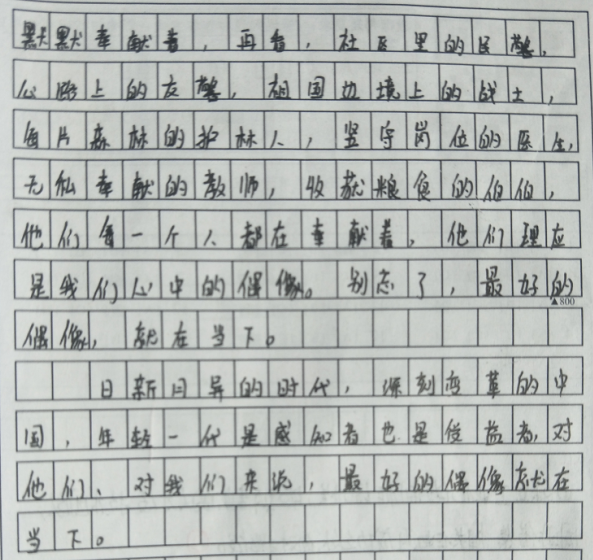 默默奉献着，再看，社区里的民警，
公路上的交警，祖国边境上的战士，
每片森林的护林人，坚守岗位的医生，
无私奉献的教师，收获粮食的伯伯，
他们每一个人都在奉献着，他们理应
是我们心中的偶像。别忘了，最好的
▲800
偶像，就在当下。
日新月异的时代，深刻变革的中
国，年轻一代是感知者也是受益者，对
他们、对我们来说，最好的偶像就在
当下。